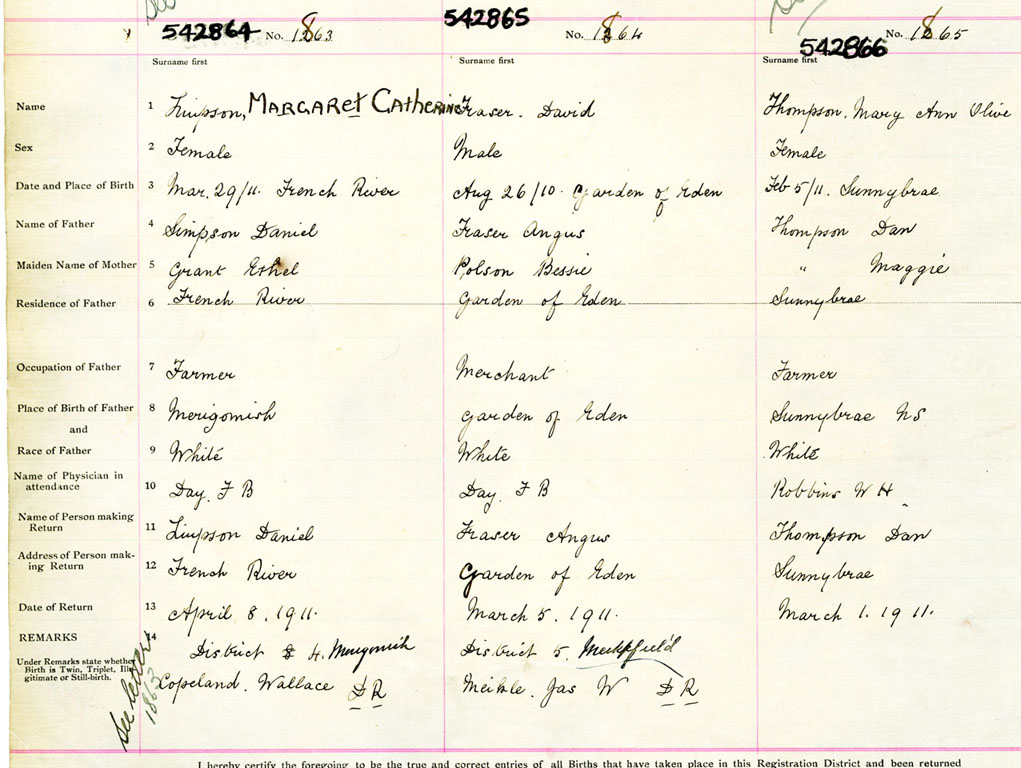 542864 No. 1863 542865 No. 1864 542866 No. 1865
Surname first Surname first Surname first
Name 1 Simpson, MARGARET CATHERINE Fraser. David Thompson. Mary Ann Olive
Sex 2 Female Male Female
Date and Place of Birth 3 Mar. 29/11. French River Aug 26/10. Garden of Eden Feb 5/11. Sunnybrae
Name of Father 4 Simpson Daniel Fraser Angus Thompson Dan
Maiden Name of Mother 5 Grant Ethel Polson Bessie " Maggie
Residence of Father 6 French River Garden of Eden Sunnybrae
Occupation of Father 7 Farmer Merchant Farmer
Place of Birth of Father 8 Merigomish Garden of Eden Sunnybrae NS
and
Race of Father 9 White White White
Name of Physician in
attendance 10 Day. F B Day. F B Robbins W H
Name of Person making
Return 11 Simpson Daniel Fraser Angus Thompson Dan
Address of Person mak-
ing Return 12 French River Garden of Eden Sunnybrae
Date of Return 13 April 8. 1911. March 5. 1911. March 1. 1911.
REMARKS 14 District 4. Merigomish District 5.
Under Remarks state whether
Birth is Twin, Triplet, Ille-
gitimate or Still-birth.
Copeland. Wallace DR Meikle. Jas W DR
See letter
1863
I hereby certify the foregoing to be the true and correct entries of all Births that have taken place in this Registration District and been returned